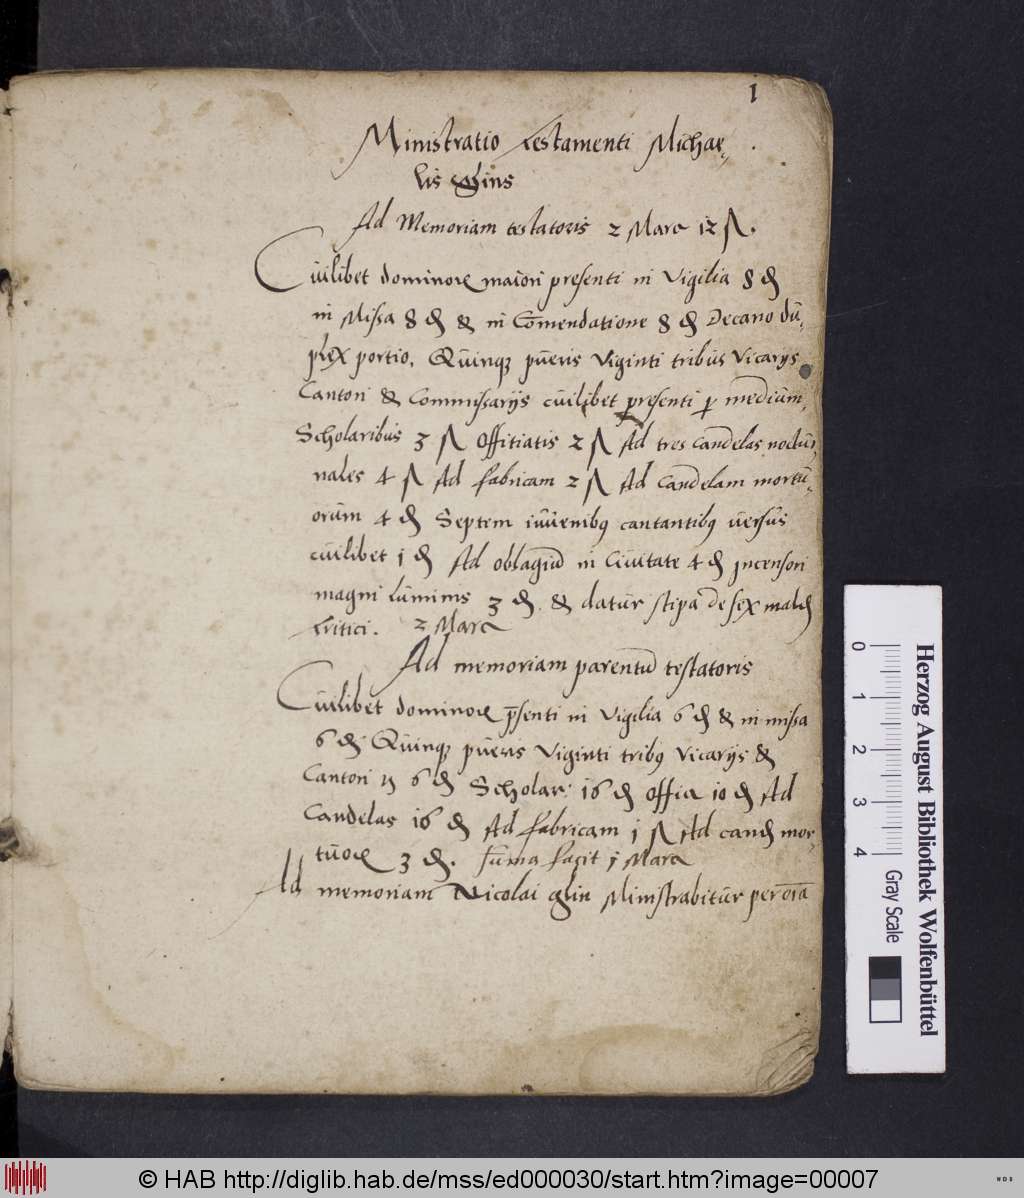 1
Ministratio testamenti Michae-
lis
Ad Memoriam testatoris 2 Marc 12 ß.
Cuilibet dominorꝝ maiori presenti in Vigilia 8 ₰
in Missa 8 ₰ & in Comendatione 8 ₰ Decano du-
plex portio. Quinqꝫ pueris Viginti tribus Vicarijs
Cantori & Commissarijs cuilibet presenti p medium
Scholaribus 3 ß Offitiatis 2 ß Ad tres Candelas noctur-
nales 4 ß Ad fabricam 2 ß Ad Candelam mortu-
orum 4 ₰ Septem iuuenibꝫ cantantibꝫ uersus
cuilibet 1 ₰ Ad oblagiū in Ciuitate 4 ₰ Incensori
magni Luminis 3 ₰. & datur stipa de sex mald
tritici. 2 Marc
Ad memoriam parentū testatoris
Cuilibet dominorꝝ p̄senti in Vigilia 6 ₰ & in missa
6 ₰ Quinqꝫ pueris Viginti tribꝫ Vicarijs &
Cantori 6 ₰ Scholar: 16 ₰ Offici 10 ₰ Ad
Candelas 16 ₰ Ad fabricam 1 ß Ad cand mor-
tuorꝝ 3 ₰. suma facit j Marc
Ad memoriam Nicolai glin Ministrabitur per oīa
Herzog August Bibliothek Wolfenbüttel
0 1 2 3 4 Gray Scale
© HAB http://diglib.hab.de/mss/ed000030/start.htm?image=00007